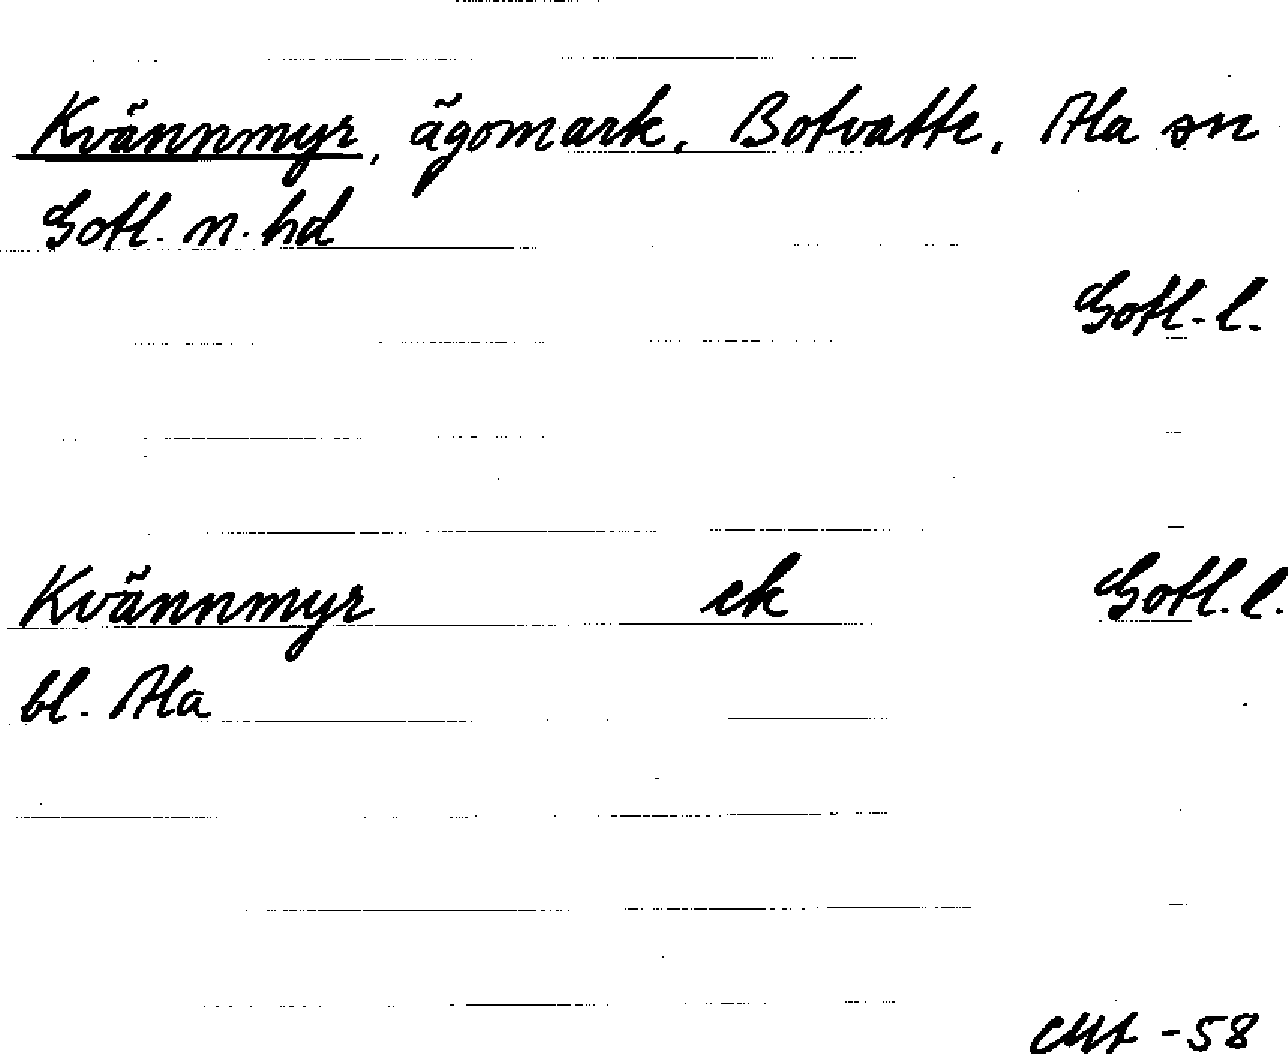 Kvännmyr, ägomark, Botvatte, Ala sn
Gotl. n. hd
Gotl. l.
Kvännmyr ek Gotl. l.
bl. Ala
-58